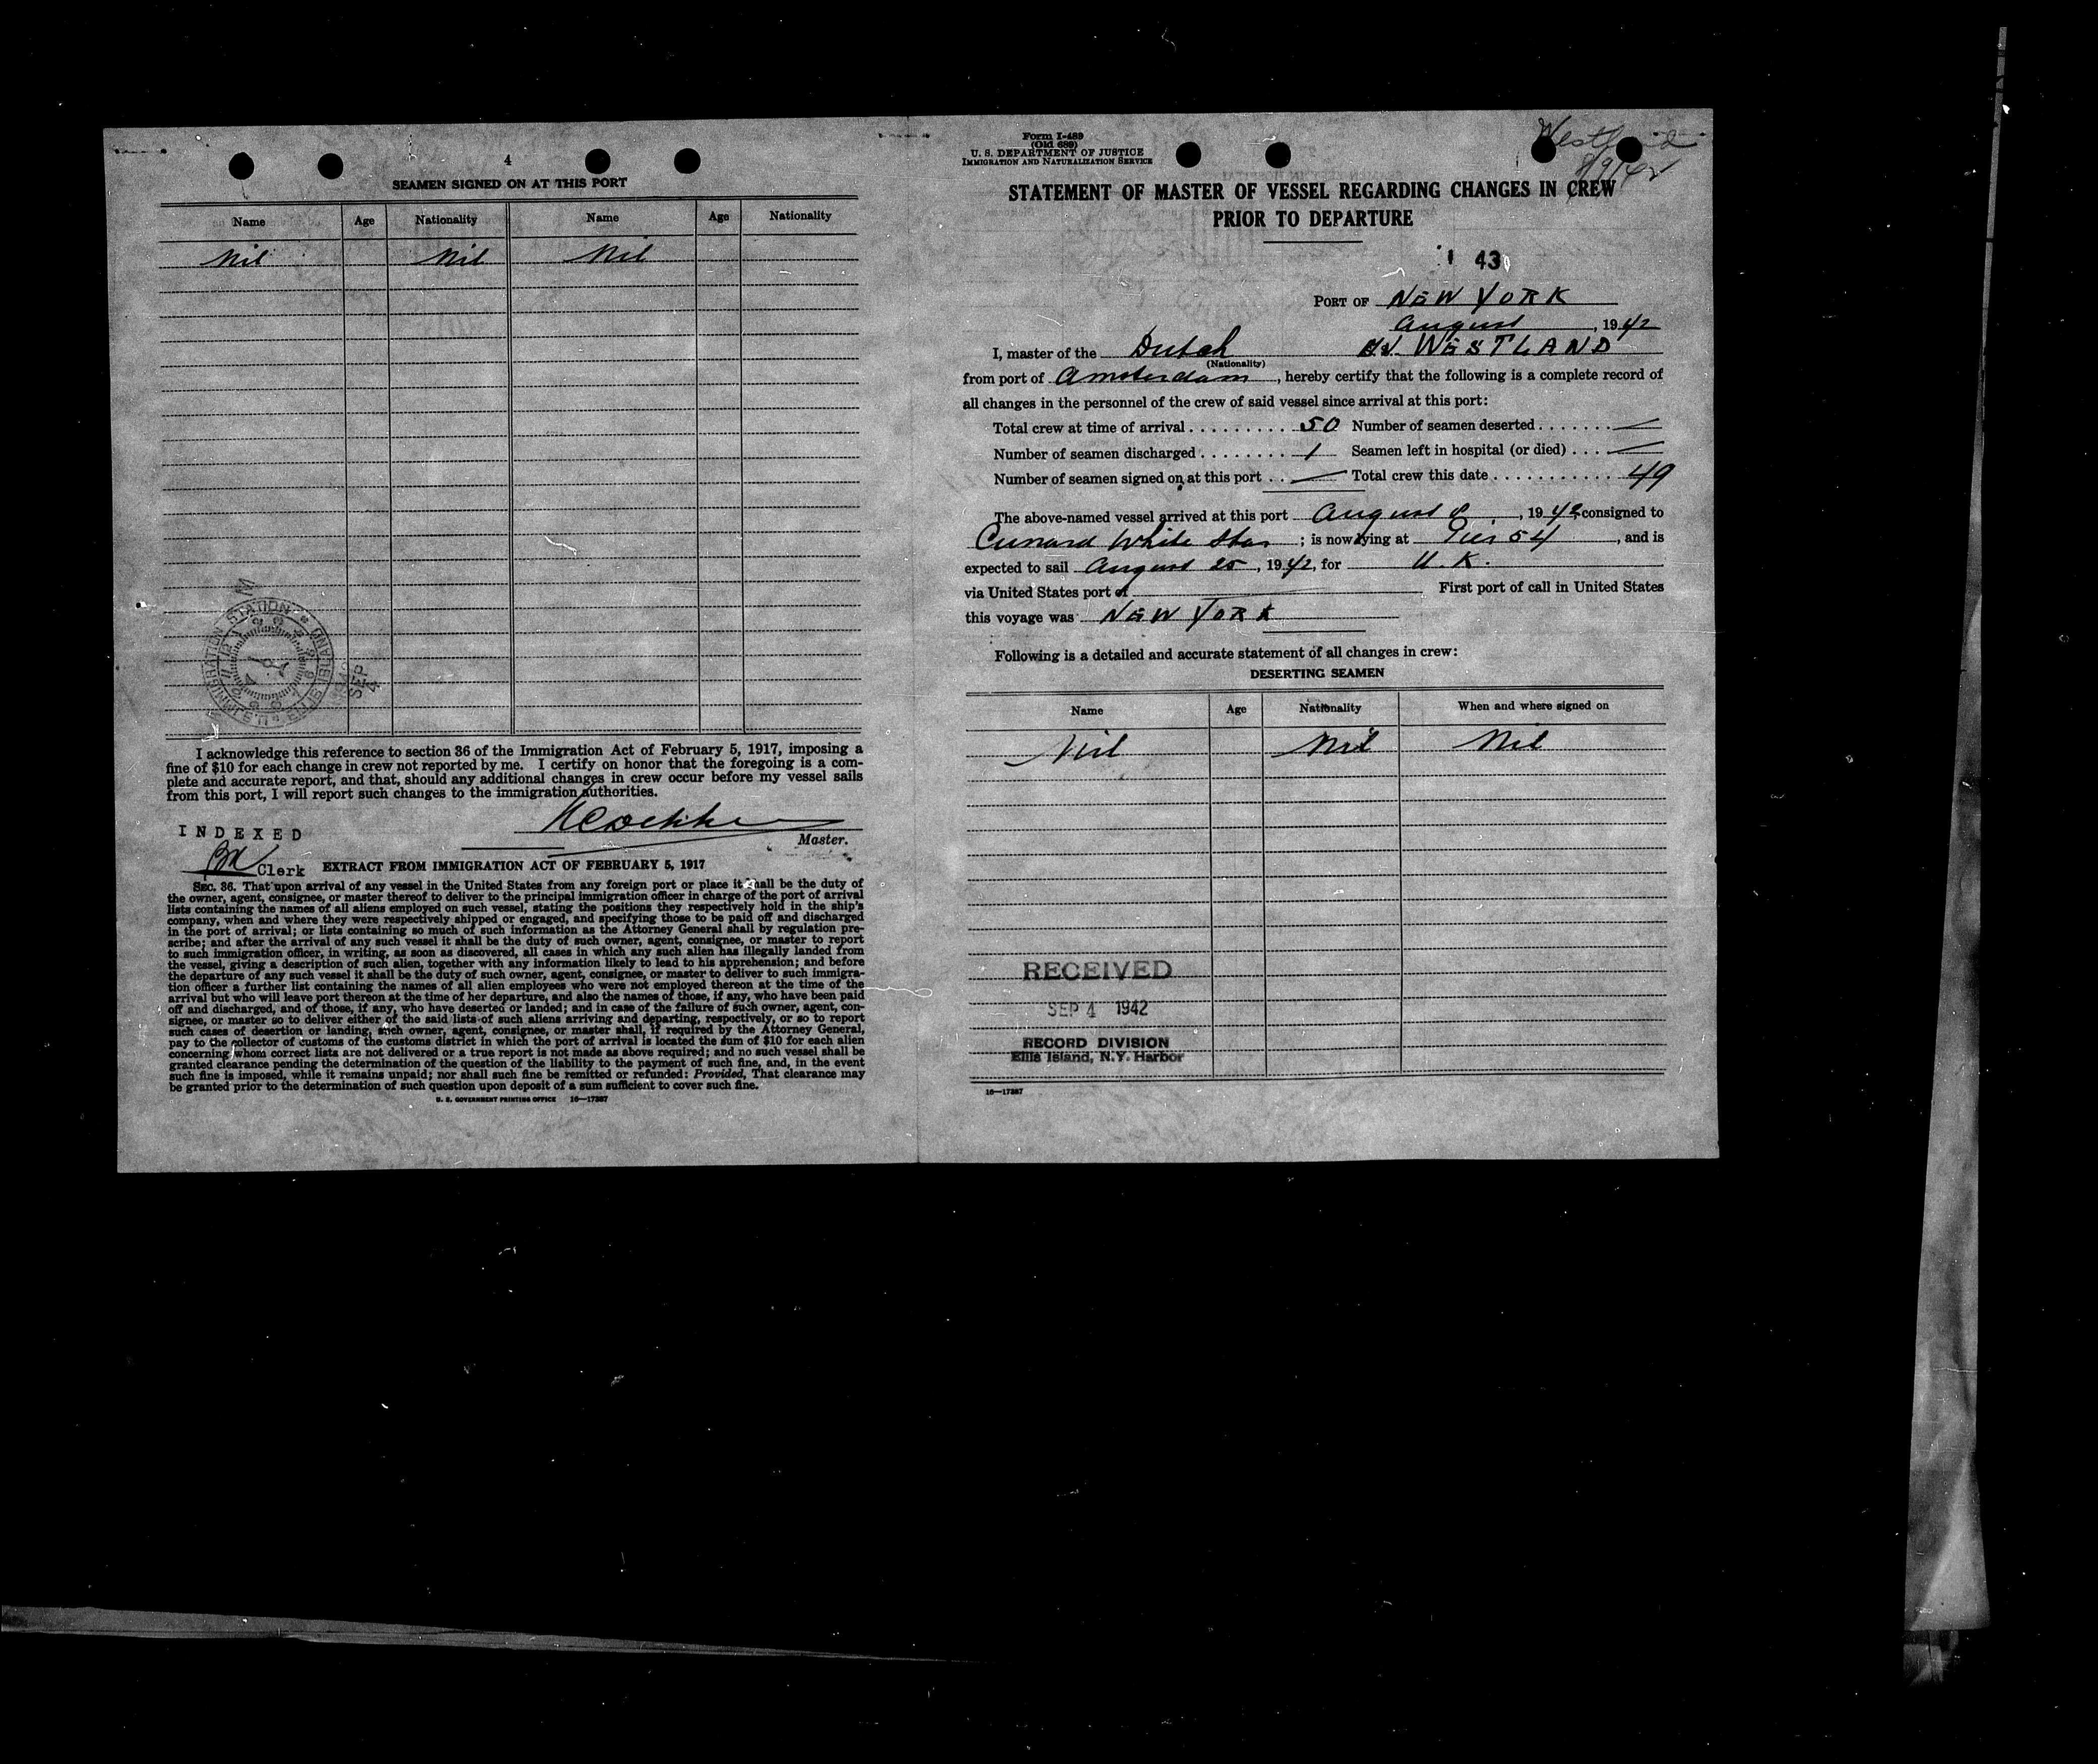 4
SEAMEN SIGNED ON AT THIS PORT
Name Age Nationality Name Age Nationality
Nil Nil Nil
U.S. IMMIGRATION STATION ELLIS ISLAND
SEP 4
I acknowledge this reference to section 36 of the Immigration Act of February 5, 1917, imposing a
fine of $10 for each change in crew not reported by me. I certify on honor that the foregoing is a com-
plete and accurate report, and that, should any additional changes in crew occur before my vessel sails
from this port, I will report such changes to the immigration authorities.
Master.
INDEXED
Clerk
EXTRACT FROM IMMIGRATION ACT OF FEBRUARY 5, 1917
SEC. 36. That upon arrival of any vessel in the United States from any foreign port or place it shall be the duty of
the owner, agent, consignee, or master thereof to deliver to the principal immigration officer in charge of the port of arrival
lists containing the names of all aliens employed on such vessel, stating the positions they respectively hold in the ship's
company, when and where they were respectively shipped or engaged, and specifying those to be paid off and discharged
in the port of arrival; or lists containing so much of such information as the Attorney General shall by regulation pre-
scribe; and after the arrival of any such vessel it shall be the duty of such owner, agent, consignee, or master to report
to such immigration officer, in writing, as soon as discovered, all cases in which any such alien has illegally landed from
the vessel, giving a description of such alien, together with any information likely to lead to his apprehension; and before
the departure of any such vessel it shall be the duty of such owner, agent, consignee, or master to deliver to such immigra-
tion officer a further list containing the names of all alien employees who were not employed thereon at the time of the
arrival but who will leave port thereon at the time of her departure, and also the names of those, if any, who have been paid
off and discharged, and of those, if any, who have deserted or landed; and in case of the failure of such owner, agent, con-
signee, or master so to deliver either of the said lists of such aliens arriving and departing, respectively, or so to report
such cases of desertion or landing, such owner, agent, consignee, or master shall, if required by the Attorney General,
pay to the collector of customs of the customs district in which the port of arrival is located the sum of $10 for each alien
concerning whom correct lists are not delivered or a true report is not made as above required; and no such vessel shall be
granted clearance pending the determination of the question of the liability to the payment of such fine, and, in the event
such fine is imposed, while it remains unpaid; nor shall such fine be remitted or refunded: Provided, That clearance may
be granted prior to the determination of such question upon deposit of a sum sufficient to cover such fine.
U. S. GOVERNMENT PRINTING OFFICE 16—17387
Form I-489
(Old 689)
U. S. DEPARTMENT OF JUSTICE
IMMIGRATION AND NATURALIZATION SERVICE
Westland
8/9/42
STATEMENT OF MASTER OF VESSEL REGARDING CHANGES IN CREW
PRIOR TO DEPARTURE
43
PORT OF NEW YORK
August, 1942
I, master of the Dutch WESTLAND
(Nationality)
from port of Amsterdam, hereby certify that the following is a complete record of
all changes in the personnel of the crew of said vessel since arrival at this port:
Total crew at time of arrival . . . . . . . . . . 50 Number of seamen deserted . . . . . . . —
Number of seamen discharged . . . . . . . . 1 Seamen left in hospital (or died) . . . —
Number of seamen signed on at this port . . — Total crew this date . . . . . . . . . . . 49
The above-named vessel arrived at this port August 8, 1942, consigned to
Cunard White Star; is now lying at Pier 54, and is
expected to sail August 25, 1942, for U. K.
via United States port of First port of call in United States
this voyage was NEW YORK
Following is a detailed and accurate statement of all changes in crew:
DESERTING SEAMEN
Name Age Nationality When and where signed on
Nil Nil Nil
RECEIVED
SEP 4 1942
RECORD DIVISION
Ellis Island, N.Y. Harbor
16—17387